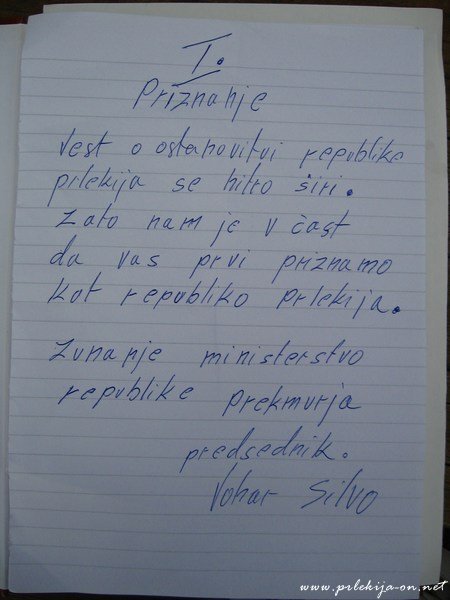 I.
Priznanje
Vest o ostanovitvi republike
prlekija se hitro širi.
Zato nam je v čast
da vas prvi priznamo
kot republiko prlekija.
Zunanje ministerstvo
republike Prekmurja
predsednik.
Vohar Silvo
www.prlekija-on.net